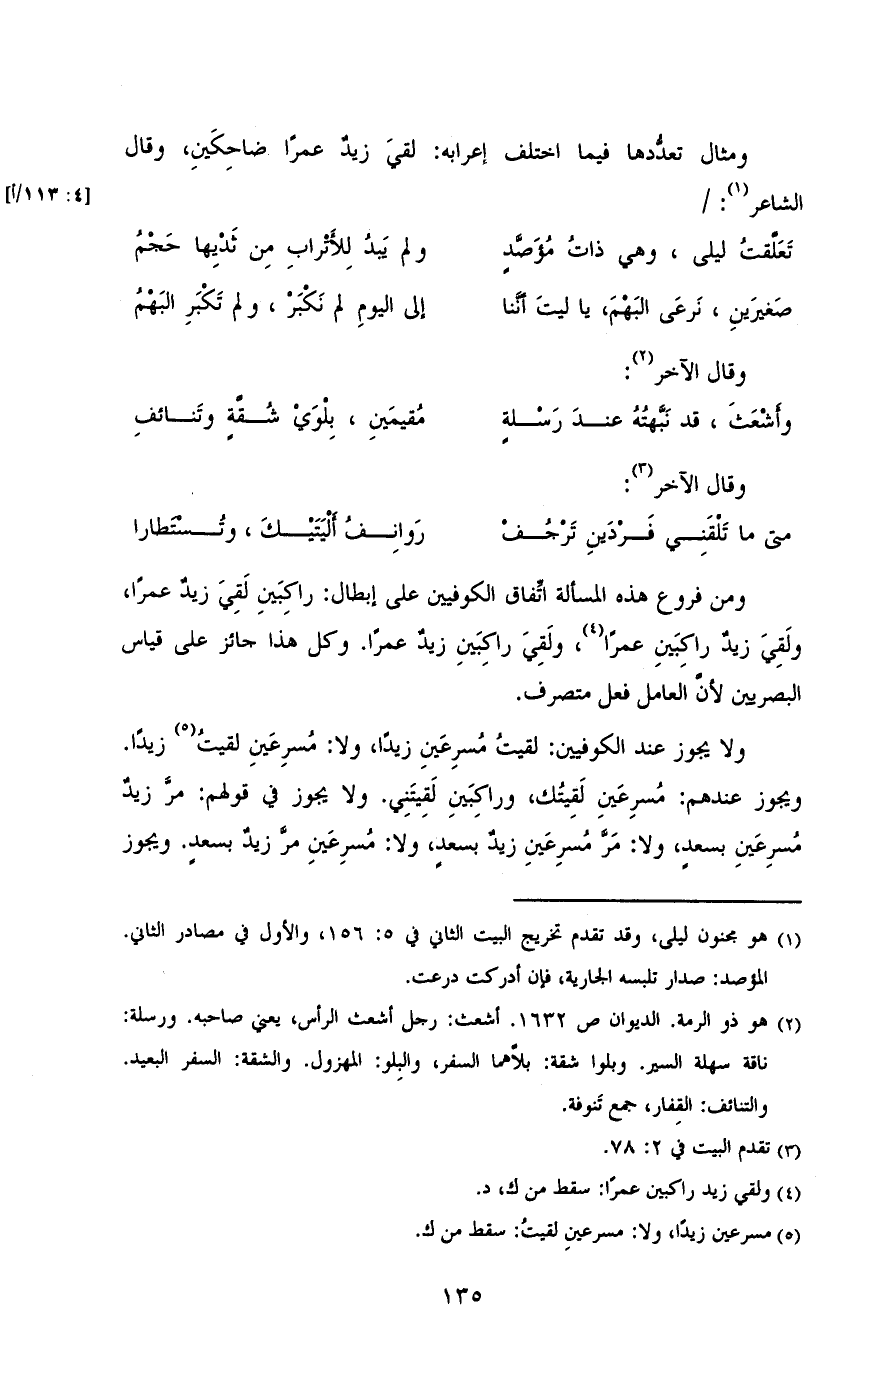 ومثال تعدُّدها فيما اختلف إعرابه: لقيَ زيدٌ عمرًا ضاحِكَينِ، وقال
الشاعر(١): /
[٤: ١١٣/أ]
تَعَلَّقتُ ليلى ، وهي ذاتُ مُؤَصَّدٍ ولم يَبدُ لِلأَتْرابِ مِن ثَدْيِها حَجْمُ
صَغيرَينِ ، نَرعَى البَهْمَ، يا ليتَ أنَّنا إلى اليومِ لم نَكْبَرْ ، ولم تَكْبَرِ البَهْمُ
وقال الآخر(٢):
وأَشْعَثَ ، قد نَبَّهتُهُ عندَ رَسْلةٍ مُقيمَينِ ، بِلْوَيْ شُقَّةٍ وتَنائفِ
وقال الآخر(٣):
متى ما تَلْقَنِي فَرْدَينِ تَرْجُفْ رَوانِفُ أَلْيَتَيْكَ ، وتُسْتَطارا
ومن فروع هذه المسألة اتِّفاق الكوفيين على إبطال: راكِبَينِ لَقِيَ زيدٌ عمرًا،
ولَقِيَ زيدٌ راكِبَينِ عمرًا(٤)، ولَقِيَ راكِبَينِ زيدٌ عمرًا. وكل هذا جائز على قياس
البصريين لأنَّ العامل فعل متصرف.
ولا يجوز عند الكوفيين: لقيتُ مُسرِعَينِ زيدًا، ولا: مُسرِعَينِ لقيتُ(٥) زيدًا.
ويجوز عندهم: مُسرِعَينِ لَقِيتُك، وراكِبَينِ لَقِيتَني. ولا يجوز في قولهم: مرَّ زيدٌ
مُسرِعَينِ بسعدٍ، ولا: مَرَّ مُسرِعَينِ زيدٌ بسعدٍ، ولا: مُسرِعَينِ مرَّ زيدٌ بسعدٍ. ويجوز
(١) هو مجنون ليلى، وقد تقدم تخريج البيت الثاني في ٥: ١٥٦، والأول في مصادر الثاني.
المؤصد: صدار تلبسه الجارية، فإن أدركت درعت.
(٢) هو ذو الرمة. الديوان ص ١٦٣٢. أشعث: رجل أشعث الرأس، يعني صاحبه. ورسلة:
ناقة سهلة السير. وبلوا شقة: بلاَّهما السفر، والبِلو: المهزول. والشقة: السفر البعيد.
والتنائف: القِفار، جمع تَنوفة.
(٣) تقدم البيت في ٢: ٧٨.
(٤) ولقي زيد راكبين عمرًا: سقط من ك، د.
(٥) مسرعين زيدًا، ولا: مسرعينِ لقيتُ: سقط من ك.
١٣٥